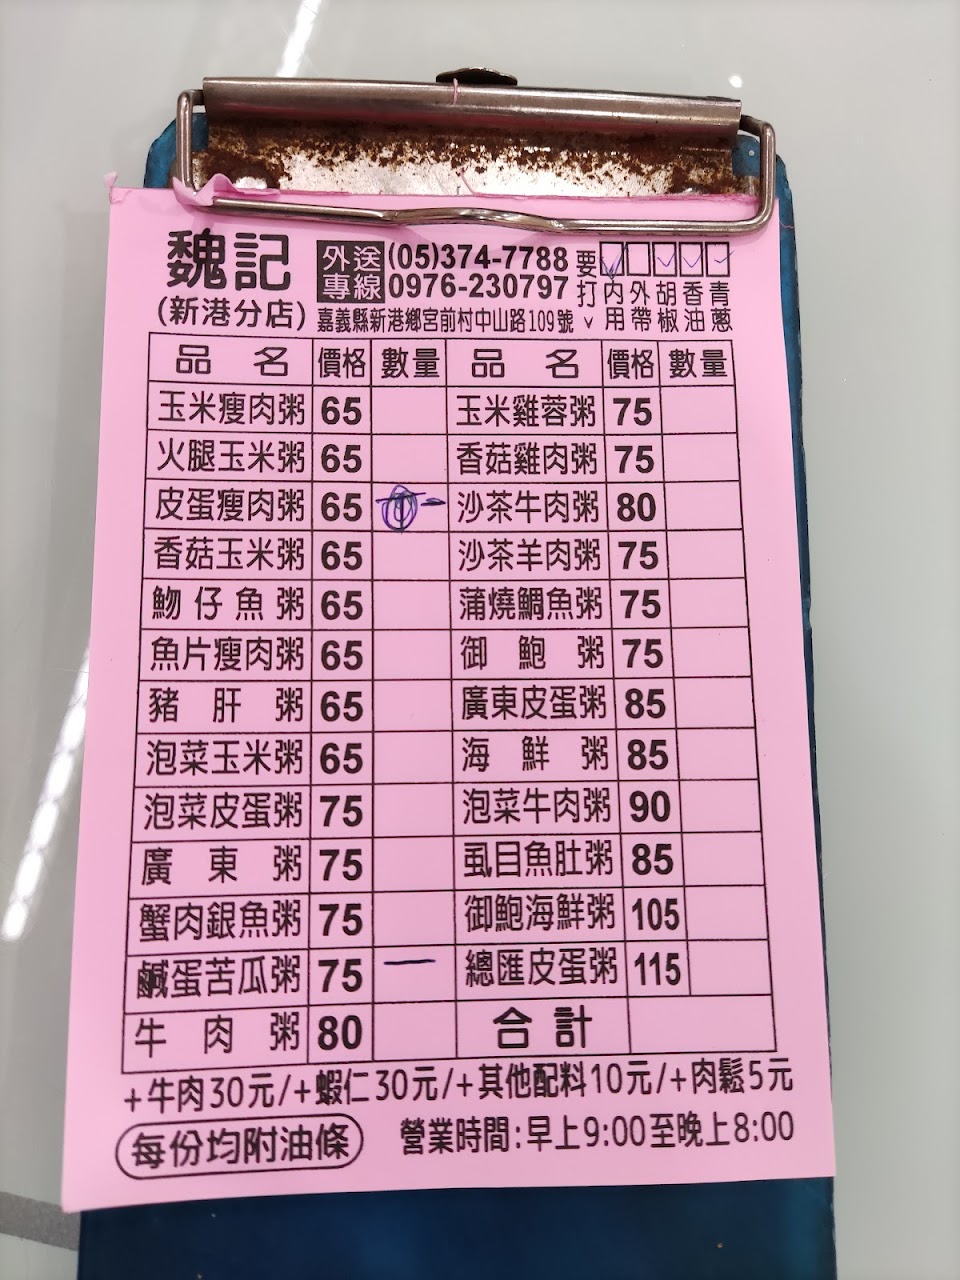 魏記
(新港分店)
外送專線
(05)374-7788
0976-230797
嘉義縣新港鄉宮前村中山路109號
要打ˇ
內用 外帶 胡椒 香油 青蔥
品名 價格 數量 品名 價格 數量
玉米瘦肉粥 65 玉米雞蓉粥 75
火腿玉米粥 65 香菇雞肉粥 75
皮蛋瘦肉粥 65 沙茶牛肉粥 80
香菇玉米粥 65 沙茶羊肉粥 75
魩仔魚粥 65 蒲燒鯛魚粥 75
魚片瘦肉粥 65 御鮑粥 75
豬肝粥 65 廣東皮蛋粥 85
泡菜玉米粥 65 海鮮粥 85
泡菜皮蛋粥 75 泡菜牛肉粥 90
廣東粥 75 虱目魚肚粥 85
蟹肉銀魚粥 75 御鮑海鮮粥 105
鹹蛋苦瓜粥 75 一 總匯皮蛋粥 115
牛肉粥 80 合計
+牛肉30元/+蝦仁30元/+其他配料10元/+肉鬆5元
每份均附油條 營業時間:早上9:00至晚上8:00